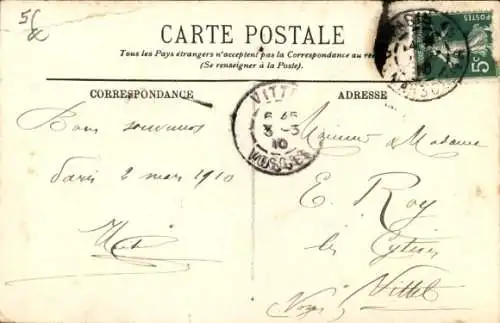 56
CARTE POSTALE
Tous les Pays étrangers n'acceptent pas la Correspondance au
(Se renseigner à la Poste)
CORRESPONDANCE
ADRESSE
POSTES
5c
VITTEL
6 45
3-3
10
VOSGES
Bons souvenirs
Paris 2 mars 1910
Monsieur et Madame
E. Roy
les
Vittel
(Vosges)